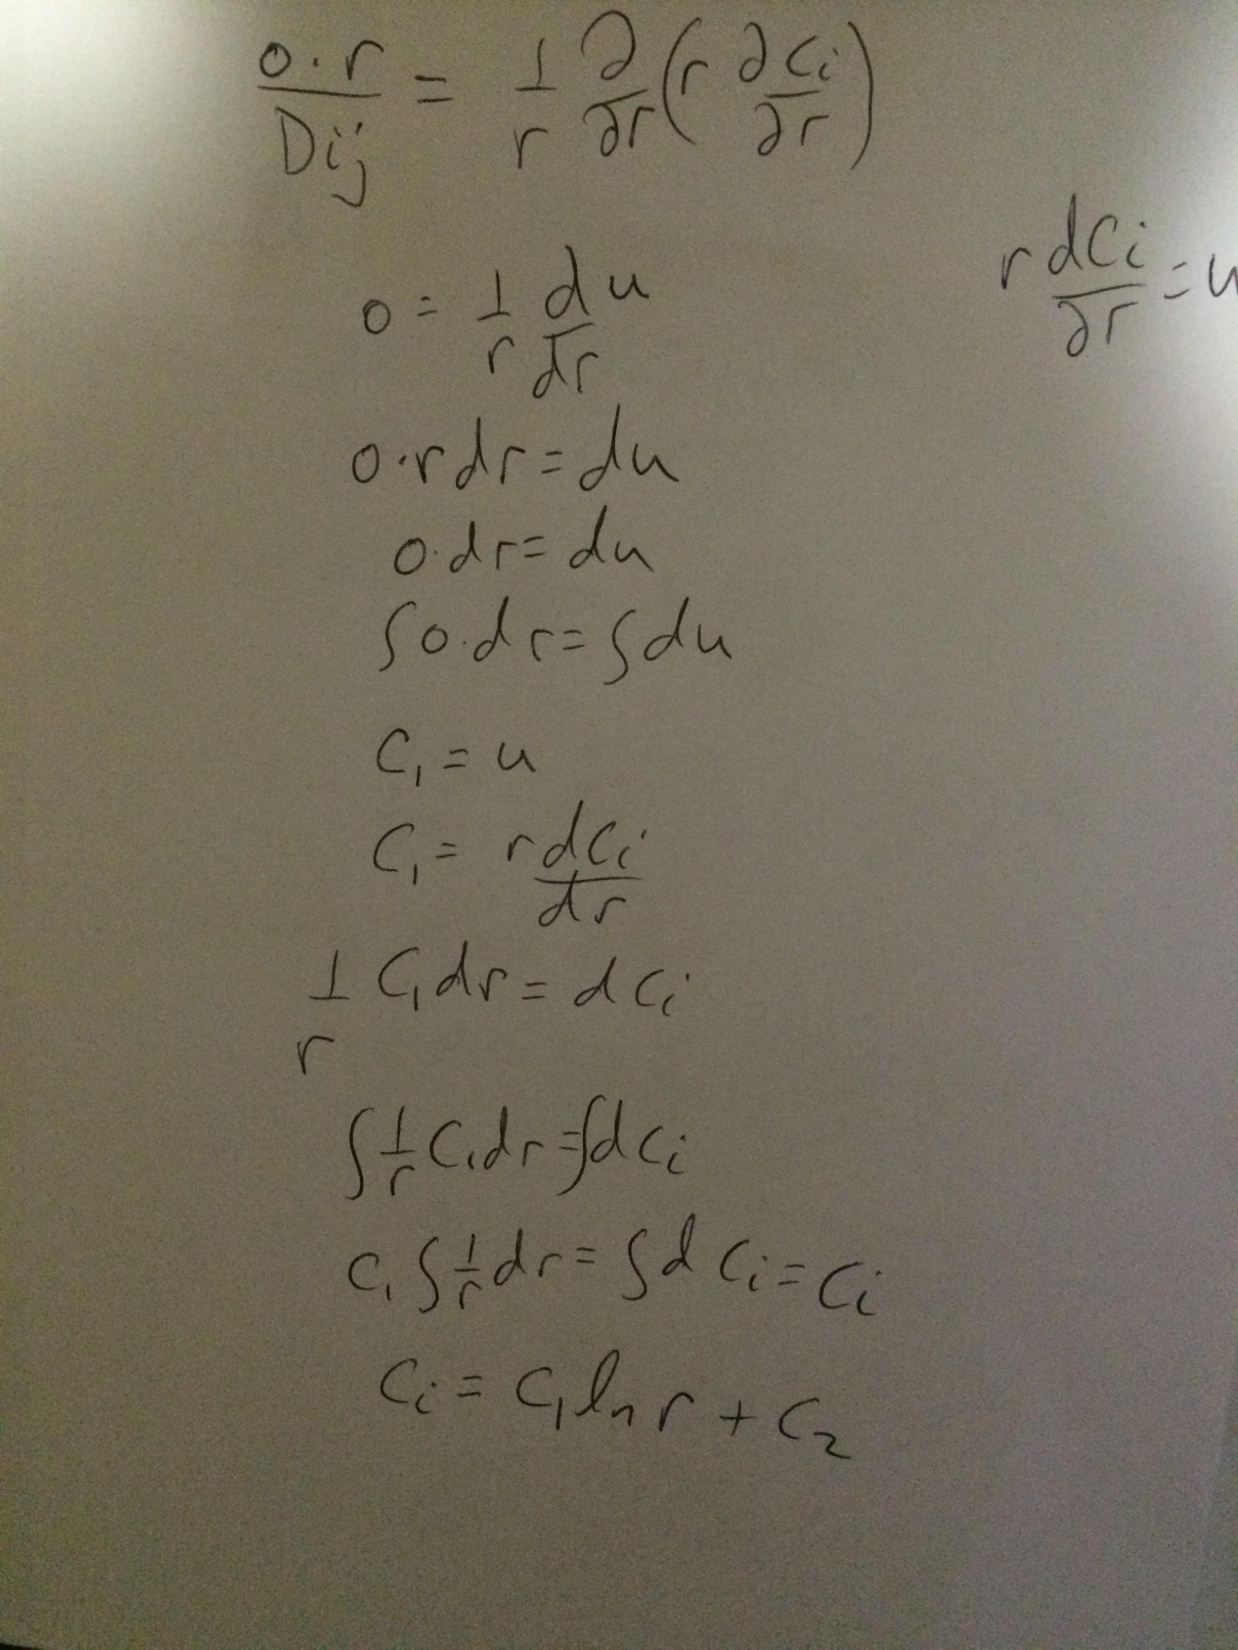 0·r/Dij = 1/r ∂/∂r (r ∂Ci/∂r)
r dCi/∂r = u
0 = 1/r du/dr
0·r dr = du
0·dr = du
∫0·dr = ∫du
C₁ = u
C₁ = r dCi/dr
1/r C₁dr = dCi
∫1/r C₁dr = ∫dCi
C₁∫1/r dr = ∫dCi = Ci
Ci = C₁ ln r + C₂